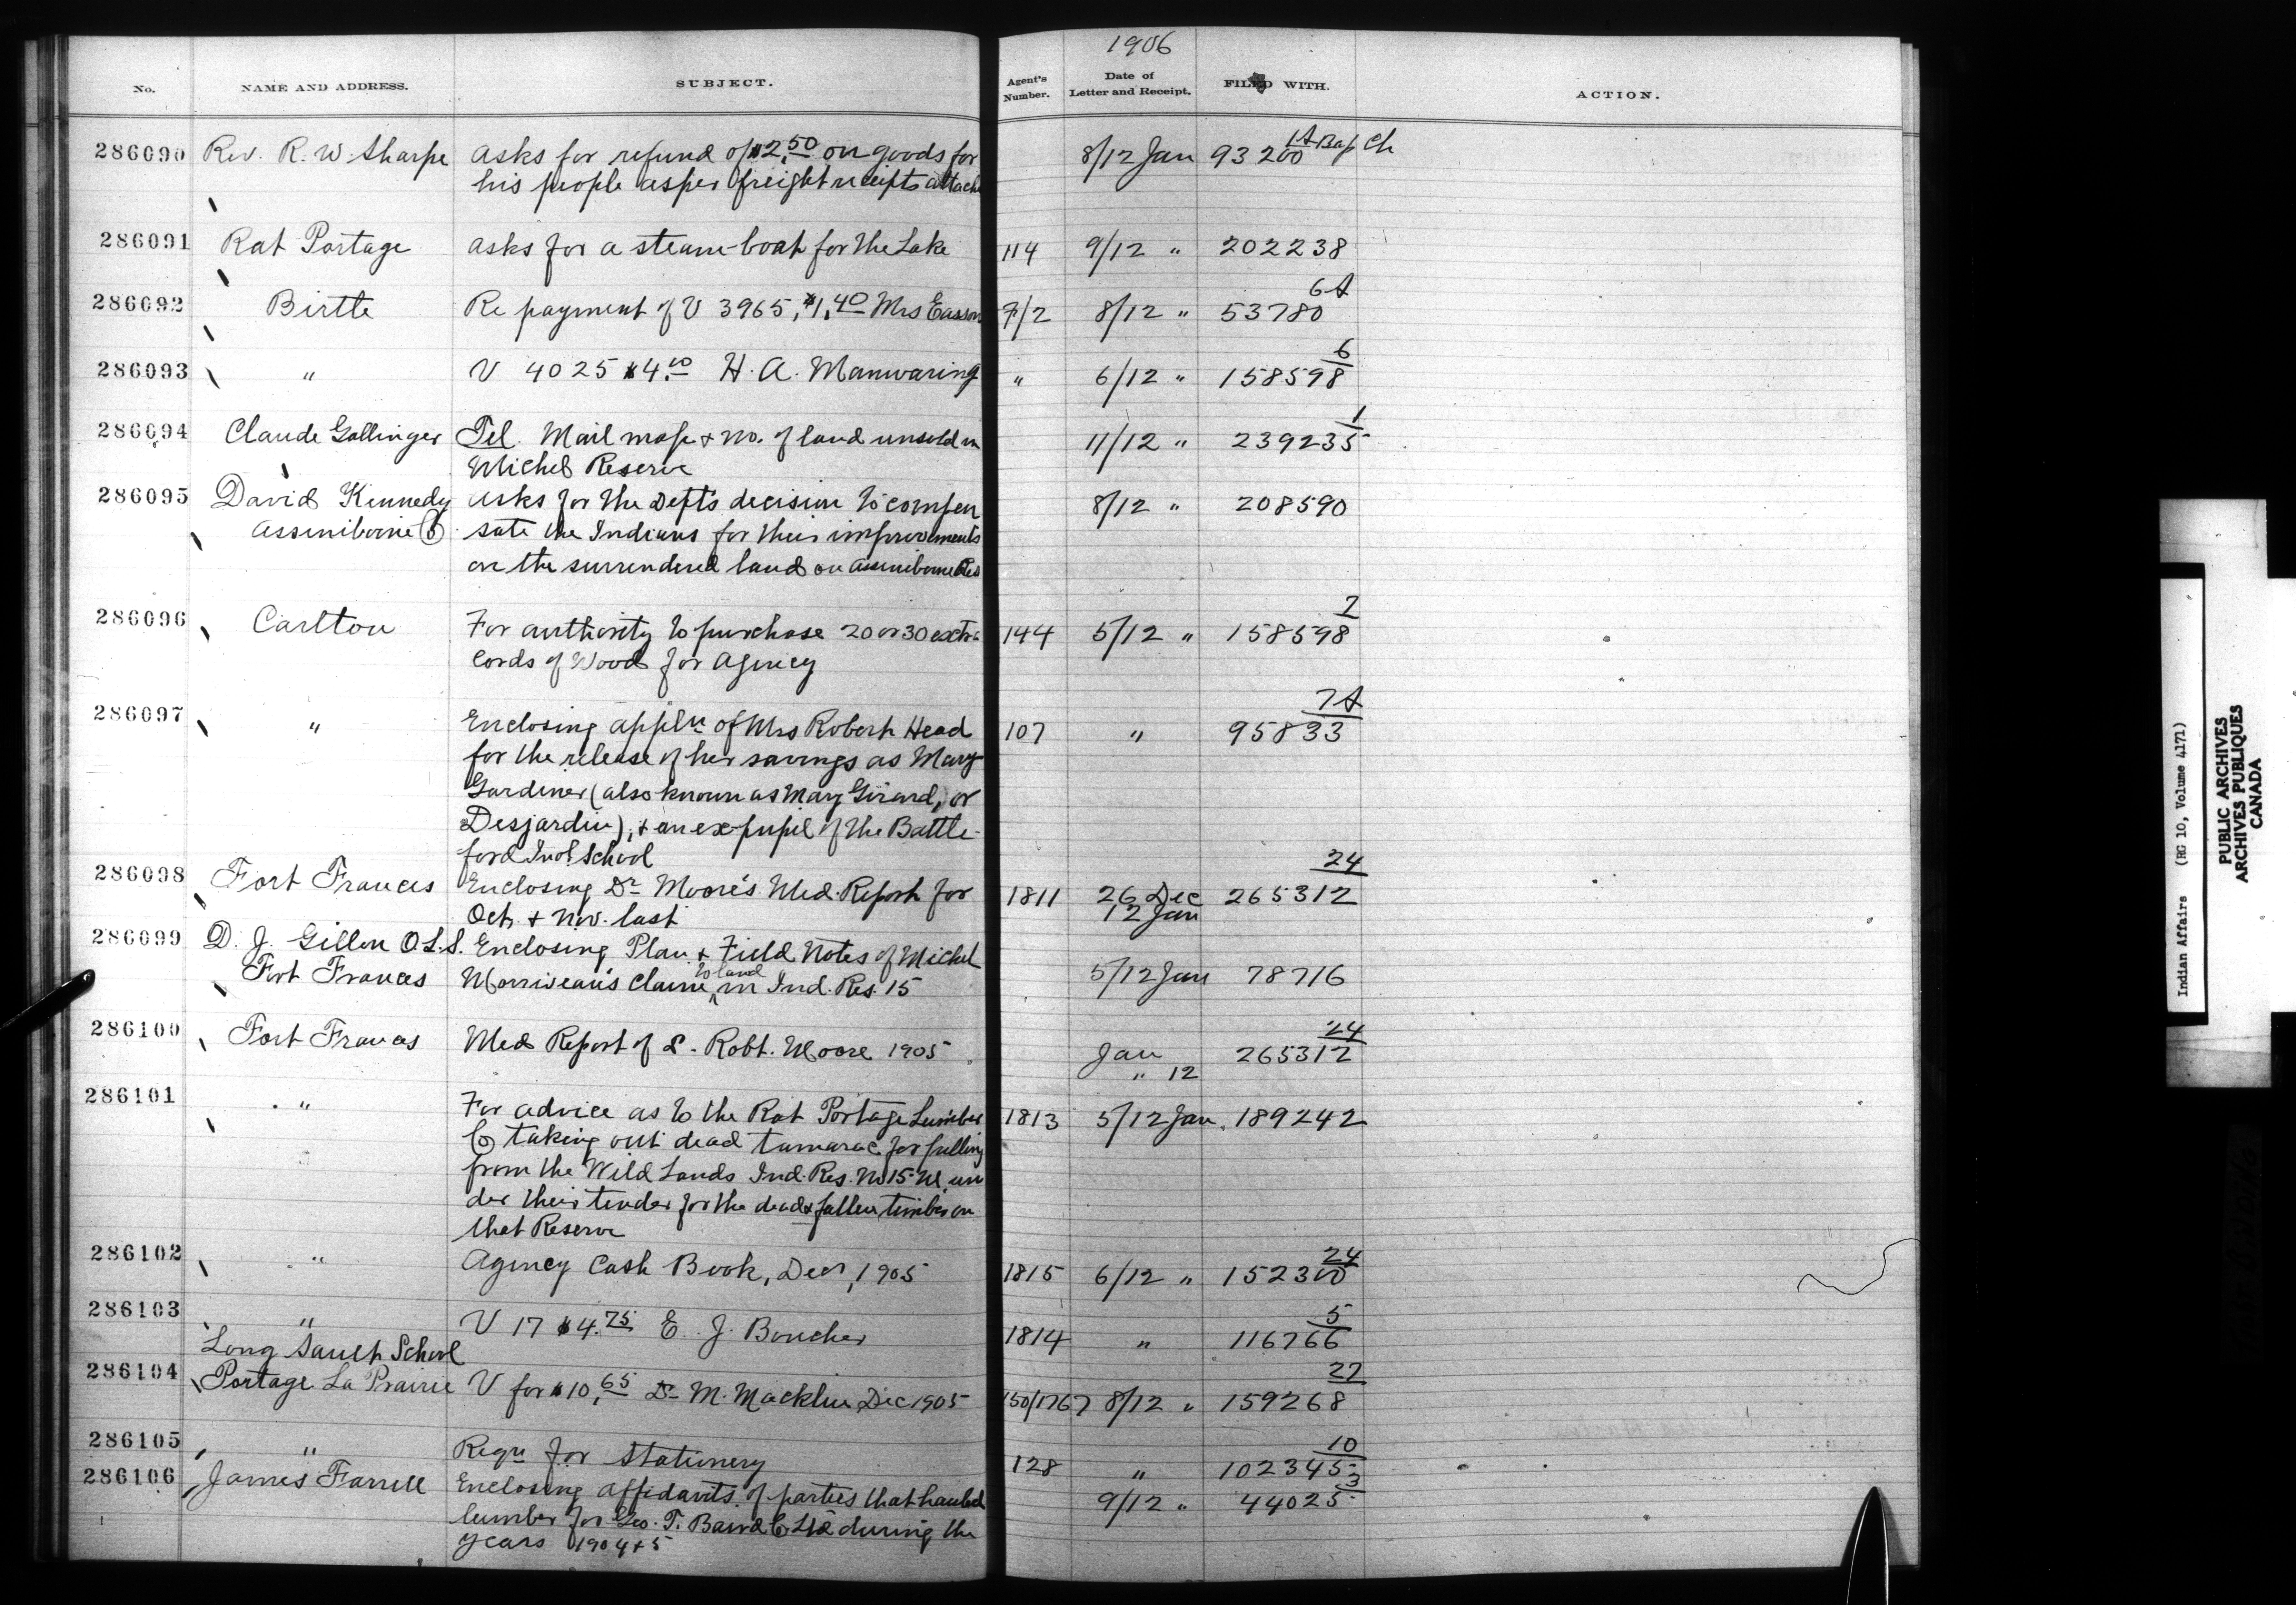 1906
No. NAME AND ADDRESS. SUBJECT. Agent's Number. Date of Letter and Receipt. FILED WITH. ACTION.
286090 Rev. R. W. Sharpe Asks for refund of $2.50 on goods for 8/12 Jan 93200 1A Bap Ch
his people as per freight receipts attach
286091 Rat Portage Asks for a steam-boat for the Lake 114 9/12 " 202238
6A
286092 Birtle Re payment of V 3965, $1.40 Mrs Easson 7/2 8/12 " 53780
6
286093 " V 4025 $4.00 H. A. Manwaring " 6/12 " 158598
1
286094 Claude Gallinger Tel. Mail map & no. of land unsold in 11/12 " 239235
Michel Reserve
286095 David Kennedy Asks for the Dept's decision to compen 8/12 " 208590
Assiniboine sate the Indians for their improvements
on the surrendered land on Assiniboine Res
7
286096 Carlton For authority to purchase 20 or 30 extra 144 5/12 " 158598
Cords of Wood for Agency
7A
286097 " Enclosing appln of Mrs Robert Head 107 " 95833
for the release of her savings as Mary
Gardiner (also known as Mary Girard, or
Desjardin), & an ex-pupil of the Battle-
ford Indl School
24
286098 Fort Frances Enclosing Dr Moore's Med. Report for 1811 26 Dec 265312
Oct. & Nov. last 12 Jan
286099 D. J. Gillon O.L.S. Enclosing Plan & Field Notes of Michel
Fort Frances Morriseau's claim to land in Ind. Res. 15 5/12 Jan 78716
24
286100 Fort Frances Med Report of Robt. Moore 1905 Jan 265312
" 12
286101 " For advice as to the Rat Portage Lumber 1813 5/12 Jan. 189242
Co taking out dead tamarac for
from the Wild Lands Ind. Res. No 15 M, un
der their tender for the dead & fallen timber on
that Reserve
24
286102 " Agency Cash Book, Decr, 1905 1815 6/12 " 152300
5
286103 " V 17 $4.75 E. J. Boucher 1814 " 116766
Long Sault School
27
286104 Portage La Prairie V for $10.65 Dr M. Macklin Dec 1905 150/1767 8/12 " 159268
10
286105 " Reqn for Stationery 128 " 102345
3
286106 James Farrell Enclosing affidavits of parties that hauled 9/12 " 44025
lumber for Geo. T. Baird Co Ltd during the
years 1904 & 5
Indian Affairs (RG 10, Volume 4171)
PUBLIC ARCHIVES
ARCHIVES PUBLIQUES
CANADA